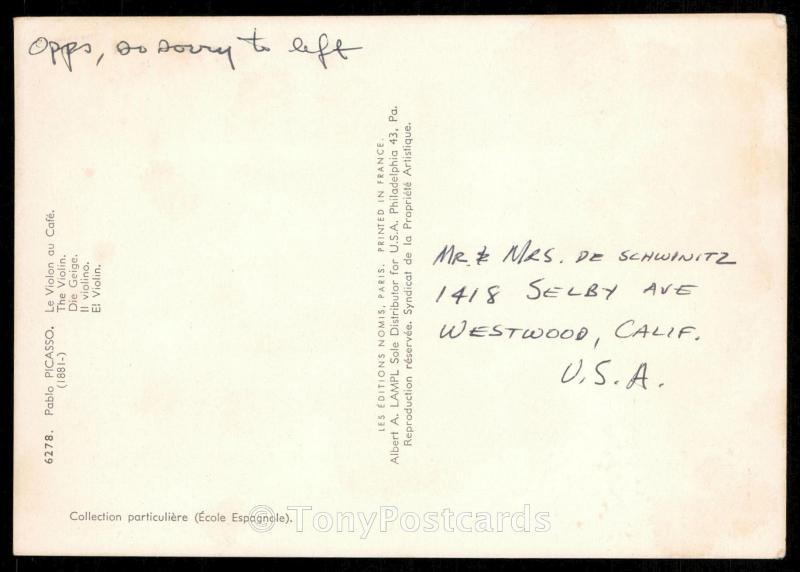 Opps, so sorry to left
6278. Pablo PICASSO. Le Violon au Café.
(1881-) The Violin.
Die Geige.
Il violino.
El Violin.
Collection particulière (École Espagnole).
LES ÉDITIONS NOMIS, PARIS. PRINTED IN FRANCE.
Albert A. LAMPL Sole Distributor for U.S.A. Philadelphia 43, Pa.
Reproduction réservée. Syndicat de la Propriété Artistique.
MR. & MRS. DE SCHWINITZ
1418 SELBY AVE
WESTWOOD, CALIF.
U.S.A.
© TonyPostcards